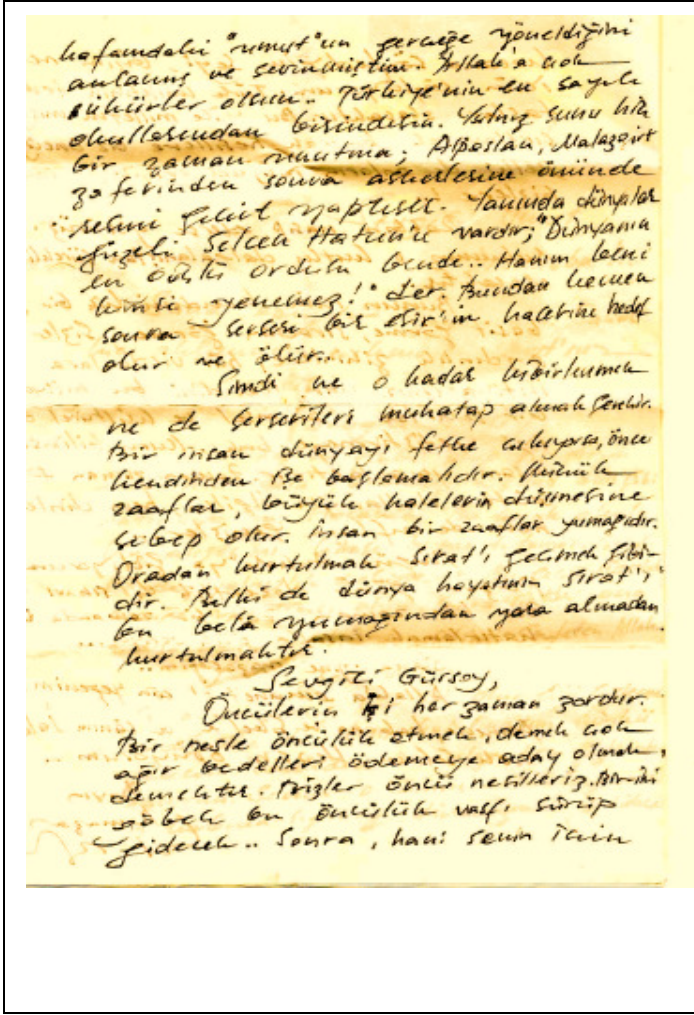 kafamdaki "umut"un gerçeğe yöneldiğini
anlamış ve sevinmiştim. Allah'a çok
şükürler olsun.. Türkiye'nin en sayılı
okullarından birisindesin. Yalnız şunu hiç
bir zaman unutma; Alpaslan, Malazgirt
zaferinden sonra askerlerine önünde
resmi geçit yaptırır. Yanında dünyalar
güzeli Selcen Hatun'u vardır; "Dünyanın
en güçlü ordusu bende.. Hanım beni
kimse yenemez!" der. Bundan hemen
sonra serseri bir esir'in hançerine hedef
olur ve ölür..
Şimdi ne o kadar kibirlenmek
ne de serserileri muhatap almak gerekir.
Bir insan dünyayı fethe çıkıyorsa, önce
kendinden işe başlamalıdır. Küçük
zaaflar, büyük kalelerin düşmesine
sebep olur. İnsan bir zaaflar yumağıdır.
Oradan kurtulmak Sırat'ı geçmek gibi-
dir. Belki de dünya hayatının Sırat'ı
bu belâ yumağından yara almadan
kurtulmaktır.
Sevgili Gürsoy,
Öncülerin işi her zaman zordur.
Bir nesle öncülük etmek, demek çok
ağır bedelleri ödemeye aday olmak,
demektir. Bizler öncü nesilleriz. Bir iki
göbek bu öncülük vasfı sürüp
gidecek.. Sonra, hani senin için